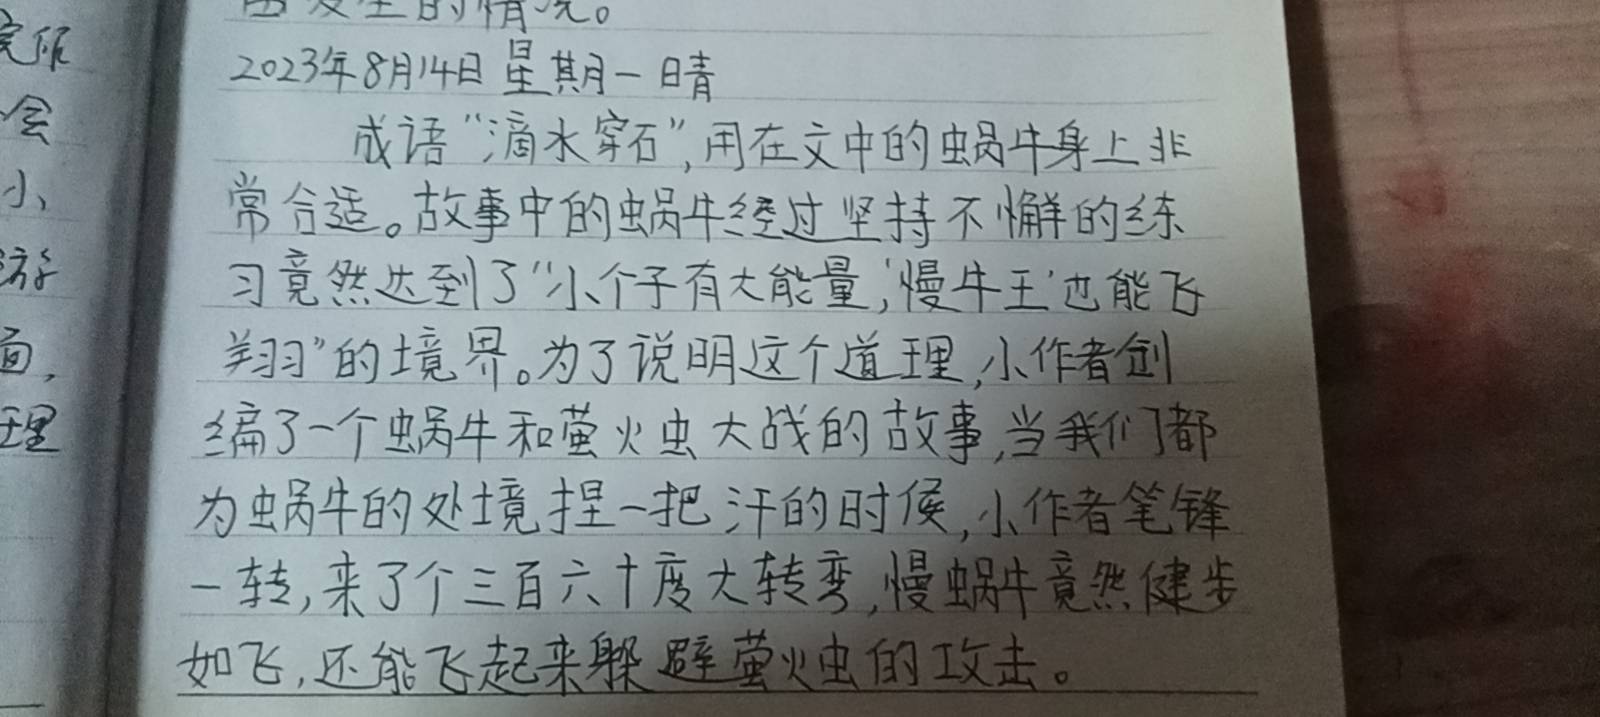 发生的情况。
2023年8月14日 星期一 晴
成语“滴水穿石”,用在文中的蜗牛身上非
常合适。故事中的蜗牛经过坚持不懈的练
习竟然达到了“小个子有大能量,‘慢牛王’也能飞
翔”的境界。为了说明这个道理,小作者创
编了一个蜗牛和萤火虫大战的故事,当我们都
为蜗牛的处境捏一把汗的时候,小作者笔锋
一转,来了个三百六十度大转弯,慢蜗牛竟然健步
如飞,还能飞起来躲避萤火虫的攻击。
会
小
游
面,
理